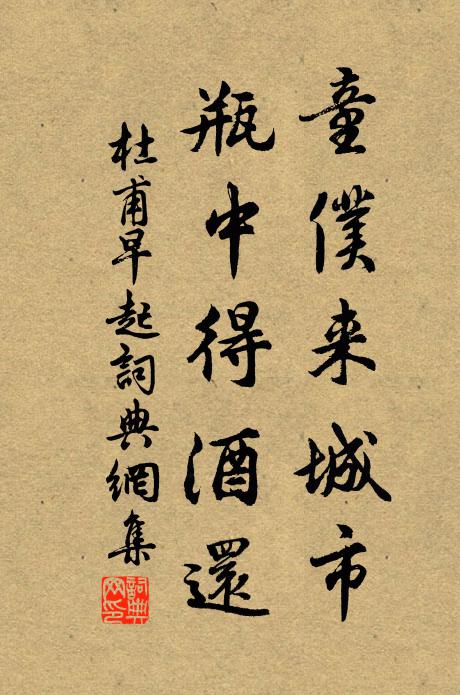 童僕来城市
瓶中得酒還
杜甫早起詞典網集
詞典网印